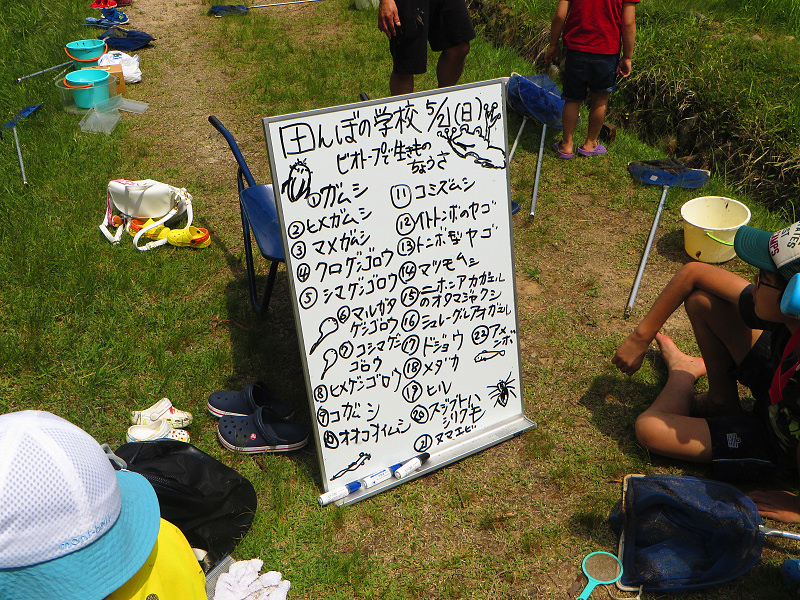 田んぼの学校 5/21(日)
ビオトープで生きもの
ちょうさ
①ガムシ
②ヒメガムシ
③マメガムシ
④クロゲンゴロウ
⑤シマゲンゴロウ
⑥マルガタ
ゲンゴロウ
⑦コシマゲン
ゴロウ
⑧ヒメゲンゴロウ
⑨コガムシ
⑩オオコオイムシ
⑪コミズムシ
⑫イトトンボのヤゴ
⑬トンボ型ヤゴ
⑭マツモムシ
⑮ニホンアカガエル
のオタマジャクシ
⑯シュレーゲルアオガエル
⑰ドジョウ
⑱メダカ
⑲ヒル
⑳スジブトハ
シリグモ
㉑ヌマエビ
㉒アメ
ンボ
mont-bell